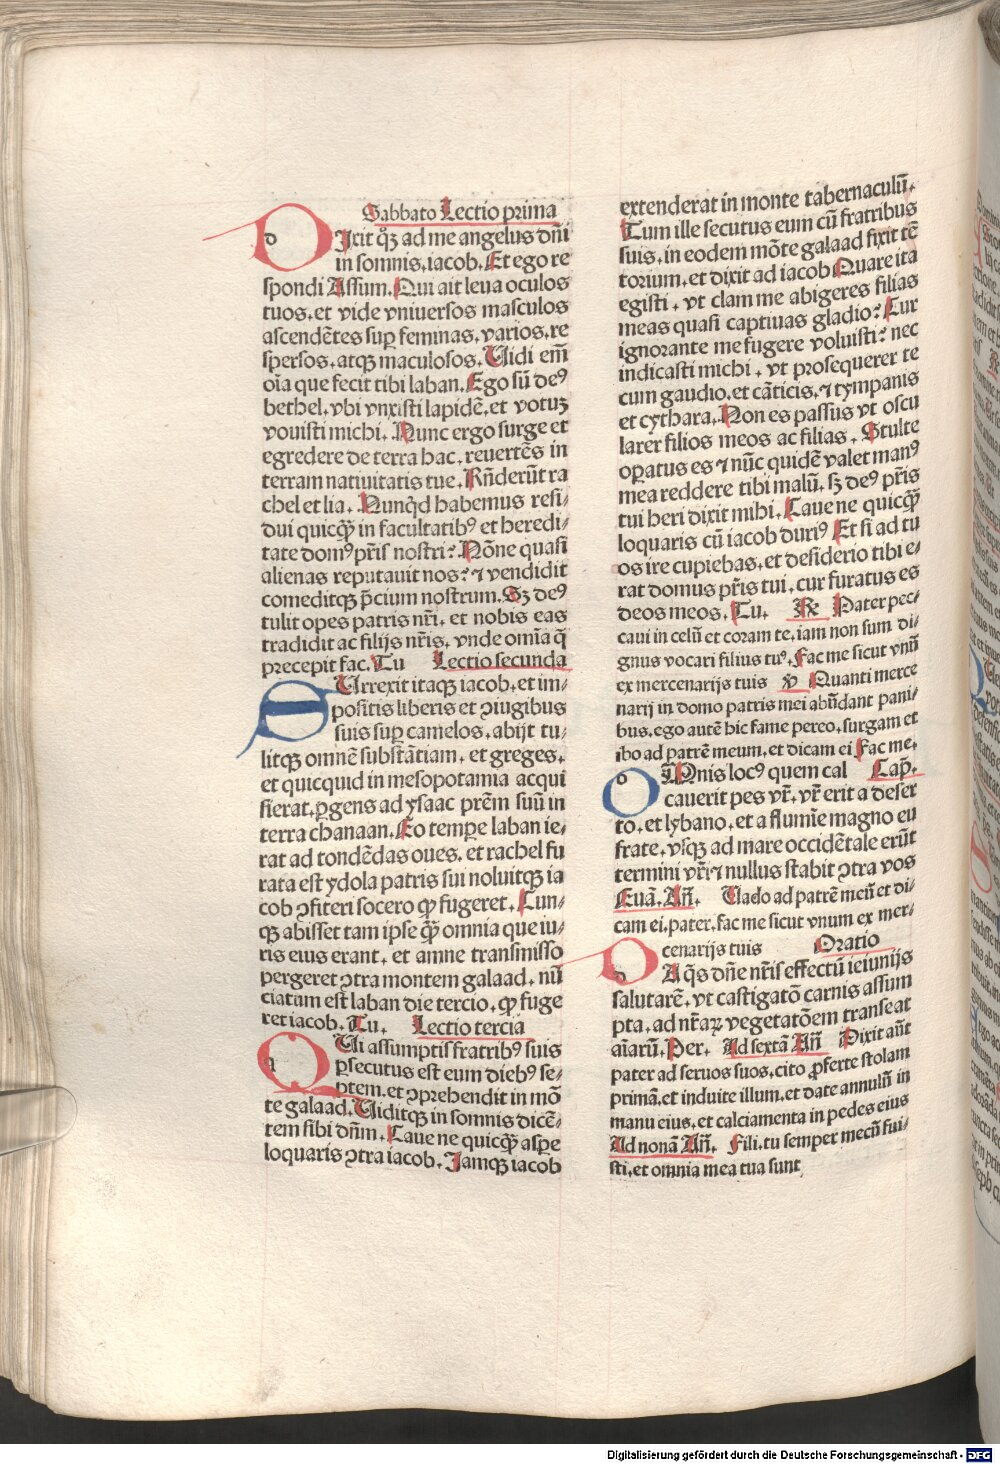 Sabbato Lectio prima
DIxit qꝫ ad me angelus dñi
in somnis. iacob. Et ego re
spondi Assum. Qui ait leua oculos
tuos. et vide vniuersos masculos
ascendẽtes sup̱ feminas. varios. re
spersos. atqꝫ maculosos. Vidi em̃
oĩa que fecit tibi laban. Ego sũ deꝰ
bethel. vbi vnxisti lapidẽ. et votuꝫ
vouisti michi. Nunc ergo surge et
egredere de terra hac. reuertẽs in
terram natiuitatis tue. Rñderũt ra
chel et lia. Nunq̇d habemus resi⸗
dui quicqꝙ̃ in facultatibꝰ et heredi⸗
tate domꝰ pr̃is nostri? Nõne quasi
alienas reputauit nos? ⁊ vendidit
comeditqꝫ p̃cium nostrum. Sꝫ deꝰ
tulit opes patris nr̃i. et nobis eas
tradidit ac filijs nr̃is. vnde omĩa q̃
precepit fac. Tu Lectio secunda
SUrrexit itaqꝫ iacob. et im⸗
positis liberis et ↄiugibus
suis sup̱ camelos. abijt tu⸗
litqꝫ omnẽ substãtiam. et greges.
et quicquid in mesopotamia acqui
sierat. ꝑgens ad ysaac prẽm suũ in
terra chanaan. Eo temp̱e laban ie⸗
rat ad tondẽdas oues. et rachel fu
rata est ydola patris sui noluitqꝫ ia
cob ↄfiteri socero ꝙ fugeret. Cun⸗
qꝫ abisset tam ipse qꝙ̃ omnia que iu⸗
ris eius erant. et amne transmisso
pergeret ↄtra montem galaad. nũ
ciatum est laban die tercio. ꝙ fuge
ret iacob. Tu. Lectio tercia
QUi assumptis fratribꝰ suis
ꝑsecutus est eum diebꝰ se⸗
ptem. et ↄprehendit in mõ
te galaad. Viditqꝫ in somnis dicẽ⸗
tem sibi dñm. Caue ne quicqꝙ̃ asp̱e
loquaris ↄtra iacob. Iamqꝫ iacob
extenderat in monte tabernaculũ.
Tum ille secutus eum cũ fratribus
suis. in eodem mõte galaad fixit tẽ
torium. et dixit ad iacob Quare ita
egisti. vt clam me abigeres filias
meas quasi captiuas gladio? Cur
ignorante me fugere voluisti? nec
indicasti michi. vt prosequerer te
cum gaudio. et cãticis. ⁊ tympanis
et cythara. Non es passus vt oscu
larer filios meos ac filias. Stulte
op̱atus es ⁊ nũc quidẽ valet manꝰ
mea reddere tibi malũ. sꝫ deꝰ pr̃is
tui heri dixit mihi. Caue ne quicqꝙ̃
loquaris cũ iacob duriꝰ Et si ad tu
os ire cupiebas. et desiderio tibi e⸗
rat domus pr̃is tui. cur furatus es
deos meos. Tu. ℟ Pater pec⸗
caui in celũ et coram te. iam non sum di⸗
gnus vocari filius tuꝰ. Fac me sicut vnũ
ex mercenarijs tuis ℣ Quanti merce
narij in domo patris mei abũdant pani⸗
bus. ego autẽ hic fame pereo. surgam et
ibo ad patrẽ meum. et dicam ei Fac me.
OMnis locꝰ quem cal Cap̃.
cauerit pes vr̃. vr̃ erit a deser
to. et lybano. et a flumĩe magno eu
frate. vsqꝫ ad mare occidẽtale erũt
termini vr̃i ⁊ nullus stabit ↄtra vos
Euã. Añ. Vado ad patrẽ meũ et di⸗
cam ei. pater. fac me sicut vnum ex mer⸗
cenarijs tuis Oratio
DA q̃s dñe nr̃is effectũ ieiunijs
salutarẽ. vt castigatõ carnis assum
pta. ad nr̃aꝝ vegetatõem transeat
aĩarũ. Per. Ad sextã Añ Dixit aũt
pater ad seruos suos. cito ꝓferte stolam
primã. et induite illum. et date annulũ in
manu eius. et calciamenta in pedes eius
Ad nonã Añ. Fili. tu semper mecũ fui⸗
sti. et omnia mea tua sunt
Digitalisierung gefördert durch die Deutsche Forschungsgemeinschaft - DFG